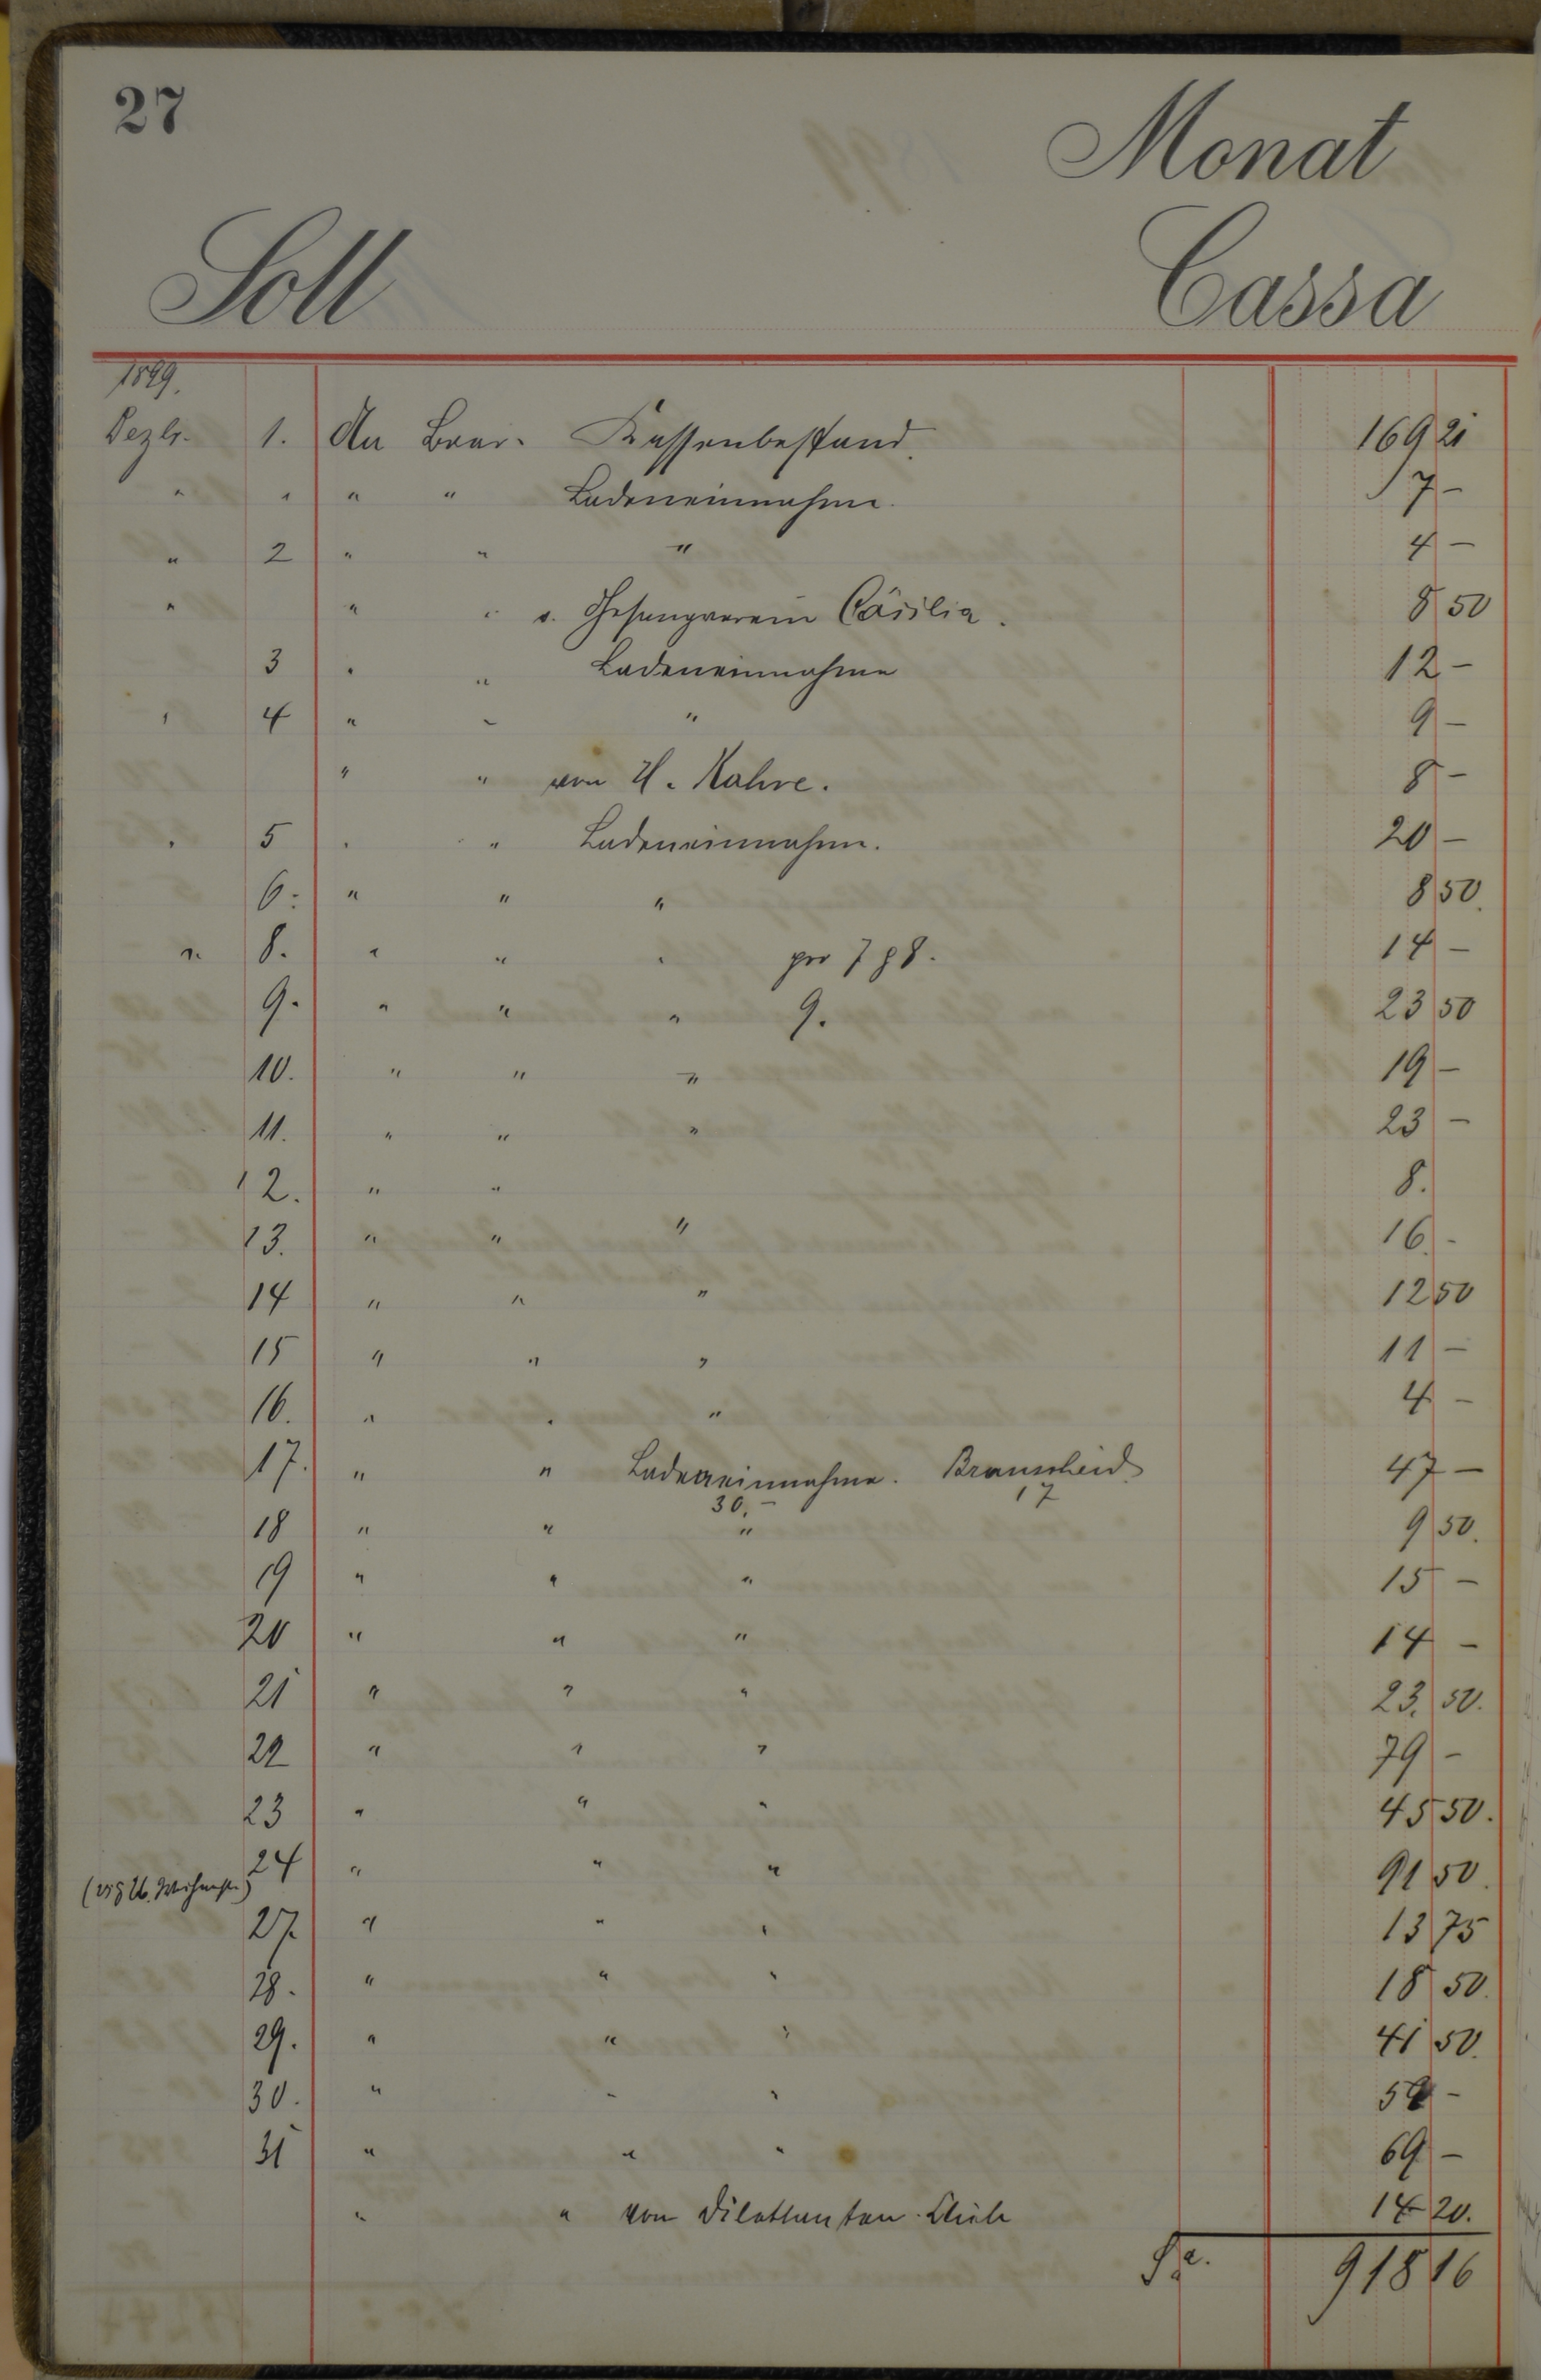 27
Monat
Soll
Cassa
1899.
Dezbr. 1. An Baar. Kassenbestand. 169 21
" " " " Ladeneinnahme. 17 -
" 2 " " " 4 -
" " " v. Gesangverein Cäcilia. 8 50
3 " " Ladeneinnahme 12 -
" 4 " " " 9 -
" " von H. Kahre. 8 -
" 5 " " Ladeneinnahme. 20 -
6. " " " 8 50.
" 8. " " " pro 7 & 8. 14 -
9. " " " 9. 23 50
10. " " " 19 -
11. " " " 23 -
12. " " 8.
13. " " " 16. -
14 " " " 12 50
15 " " " 11 -
16. " " " 4 -
17. " " Ladeneinnahme. Branscheid 47 -
30. - 17
18 " " " 9 50.
19 " " " 15 -
20 " " " 14 -
21 " " " 23. 50.
22 " " " 79 -
23 " " " 45 50.
24 " " " 91 50.
27. " " " 13 75
28. " " " 18 50.
29. " " " 41 50.
30. " " " -
31 " " " 69 -
" " von Dilettanten. 14 20.
Sa. 918 16